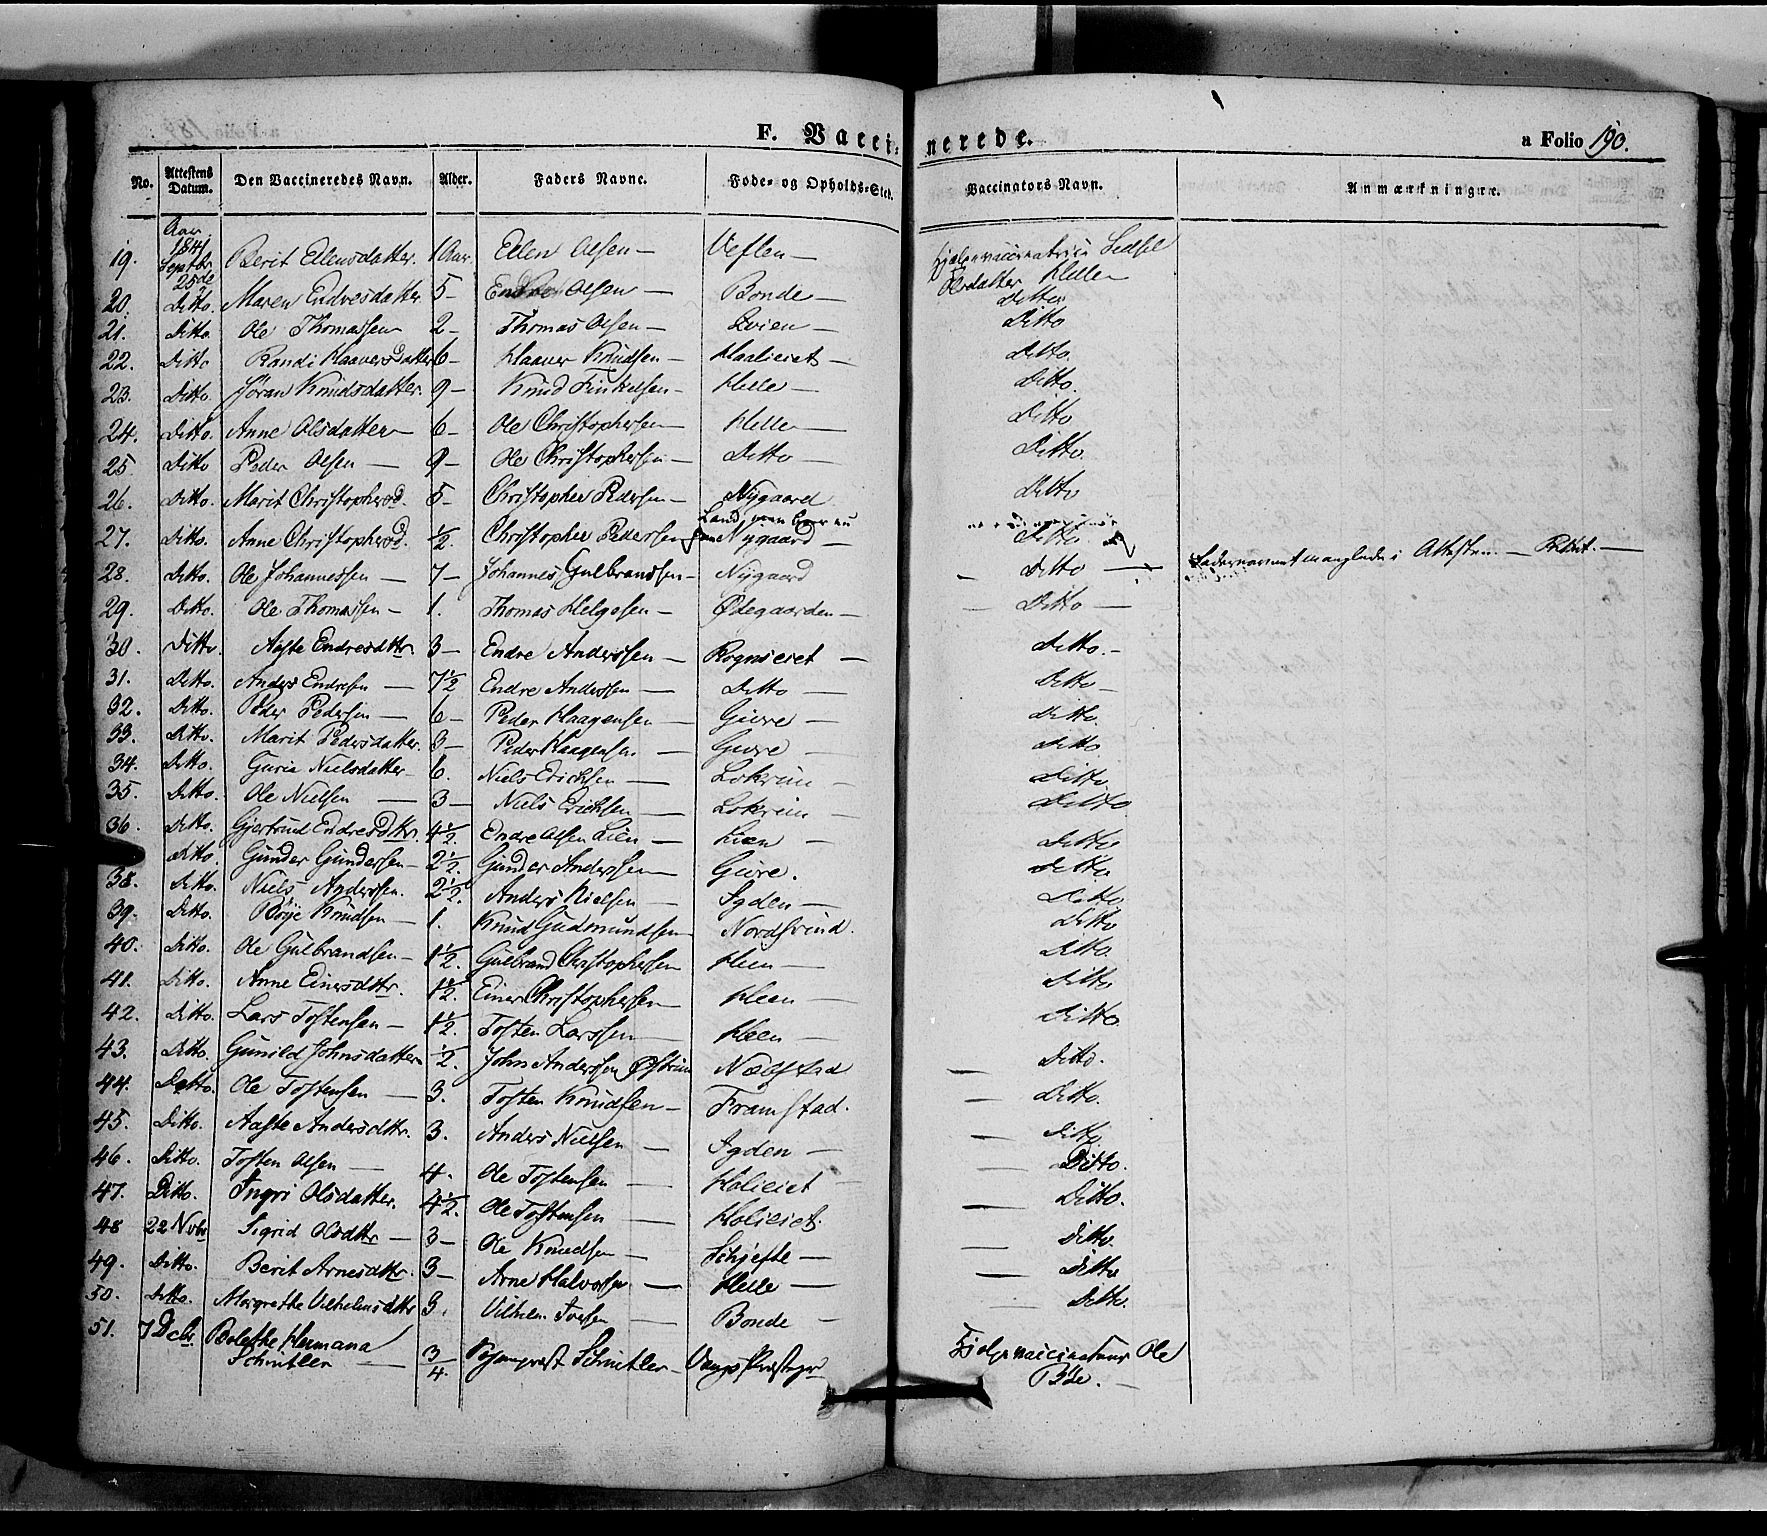 F. Vacci- nerede. a Folio 190.
No. Attestens Datum. Den Vaccineredes Navn. Alder. Faders Navne. Føde- og Opholds-Sted. Vaccinators Navn. Anmærkninger.
Aar 1841
19. Septbr. 25de Berit Ellensdatter. 1 Aar. Ellen Olsen — Veflen — Hjelpevaccinatrice Sidsel Olsdatter Helle
20. Ditto. Maren Endresdatter 5 — Endre Olsen — Bonde — Ditto
21. Ditto Ole Thomassen 2 — Thomas Olsen — Qvien — Ditto
22. Ditto Randi Haaversdatter 6 — Haaver Knudsen — Haalieiet — Ditto.
23. Ditto. Jöran Knudsdatter. 9 — Knud Finkelsen — Helle — Ditto.
24. Ditto. Anne Olsdatter 6 — Ole Christophersen — Helle — Ditto
25 Ditto Peder Olsen — 9 — Ole Christophersen — Ditto — Ditto.
26. Ditto. Marit Christophersd. 5 — Christopher Pedersen — Nygaard Ditto
27. Ditto. Anne Christophersd. ½. Christopher Pedersen Land, men boer nu Nygaard — Ditto.
28. Ditto. Ole Johannessen — 7 — Johannes Gulbrandsen — Nygaard Ditto — Fadernavnet manglede i Attesten. — Rettet. —
29. Ditto. Ole Thomassen — 1. Thomas Helgesen — Ødegaarden — Ditto —
30. Ditto. Aaste Endresdttr. 3 — Endre Anderssen — Rogneeiet — Ditto. —
31. Ditto. Anders Endresen — 7½ Endre Anderssen — Ditto — Ditto —
32. Ditto. Peder Pedersen — 6 — Peder Haagensen — Giere — Ditto.
33. Ditto. Marit Pedersdatter. 3 — Peder Haagensen — Gure — Ditto
34. Ditto. Guria Nielsdatter 6. Niels Erichsen — Lokrün — Ditto
35. Ditto. Ole Nielsen — 3 — Niels Erichsen — Lokrün — Ditto
36. Ditto. Gjertrud Endresdttr. 4½. Endre Olsen Lien — Lien — Ditto
Ditto. Gunder Gundersen — 2½. Gunder Anderssen Gure. Ditto
38. Ditto. Niels Anderssen. 2½. Anders Nielsen — Igden — Ditto
39. Ditto. Börje Knudsen — 1. Knud Gudmundsen Nordsvind. Ditto
40. Ditto. Ole Gulbrandsen — 1½. Gulbrand Christophersen Heen — Ditto.
41. Ditto. Anne Einersdttr. 1½. Einer Christophersen Heen — Ditto
42. Ditto. Lars Tostensen — 1½. Tosten Larssen — Heen — Ditto.
43. Ditto. Gunild Johnsdatter ½. John Anderssen Østrün Nædstad — Ditto.
44. Ditto. Ole Tostensen — 3. Tosten Knudsen — Framstad. — Ditto.
45. Ditto. Aaste Andersdttr. 3. Anders Nielsen — Igden — Ditto
46. Ditto. Tosten Olsen — 4. Ole Tostensen — Holieiet — Ditto.
47. Ditto. Ingri Olsdatter. 4½. Ole Tostensen — Holieiet. Ditto.
48 22 Novbr Sigrid Olsdttr — 3 — Ole Knudsen — Schjefte — Ditto.
49. Ditto. Berit Arnesdttr. 3 — Arne Halvorsen. — Helle — Ditto
50. Ditto. Margrethe Vilhelmsdttr 3. Vilhelm Iversen — Bonde — Ditto.
51. 7 Decbr Bolethe Hermana Schnitler — ¾. Sogneprest Schnitler — Vangs Prestegr Hjelpevaccinateur Ole Böe. —